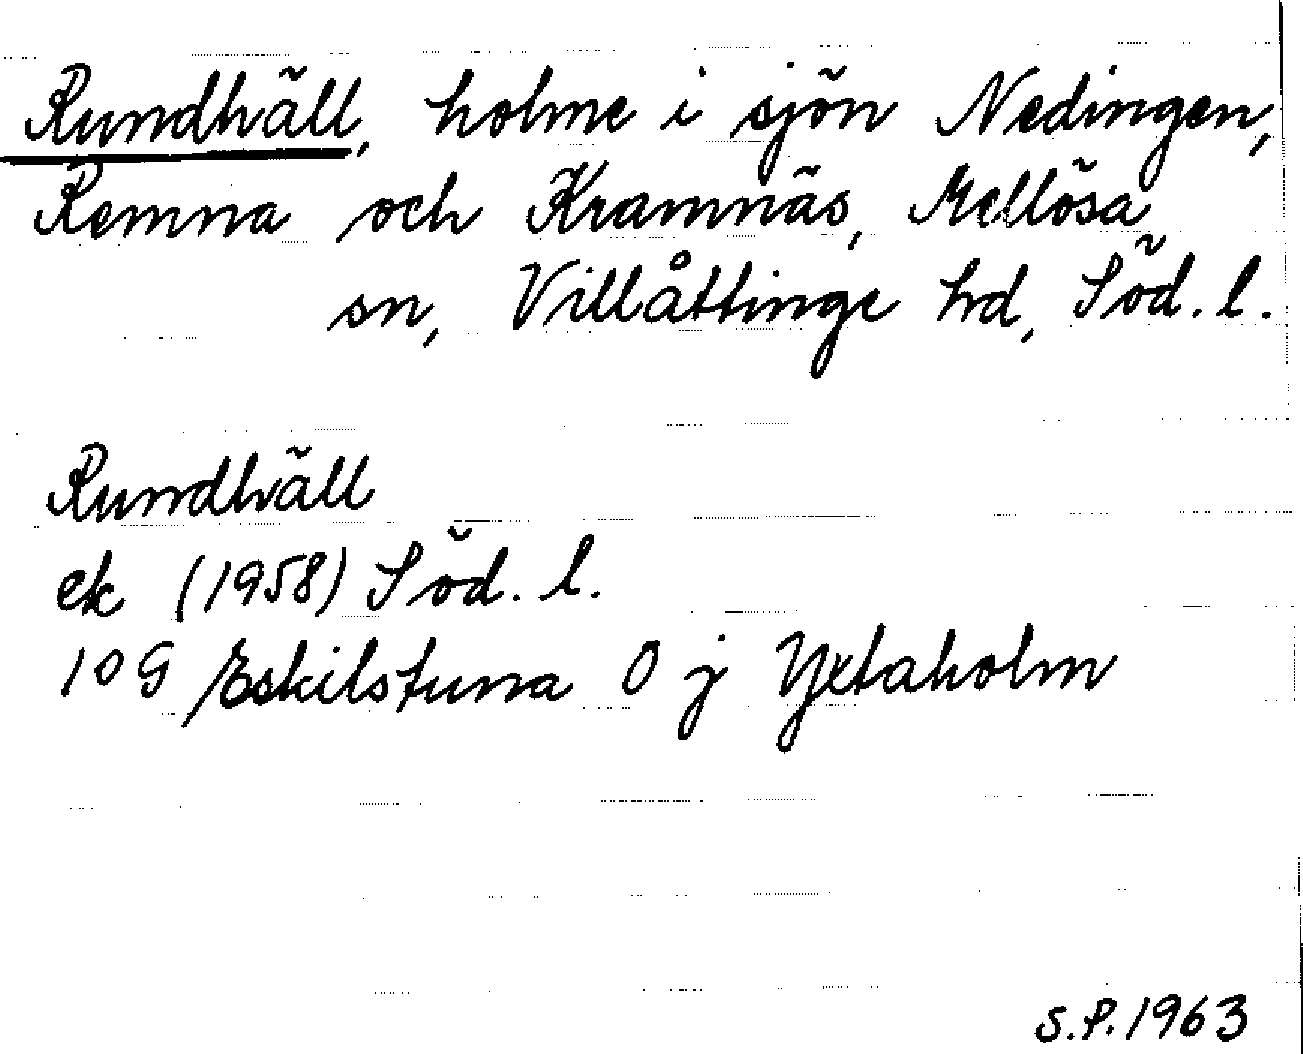 Rundhäll, holme i sjön Nedingen,
Remna och Kramnäs, Mellösa
sn, Villåttinge hd, Söd. l.
Rundhäll
ek (1958) Söd. l.
10 G Eskilstuna 0 j Yxtaholm
S.P. 1963